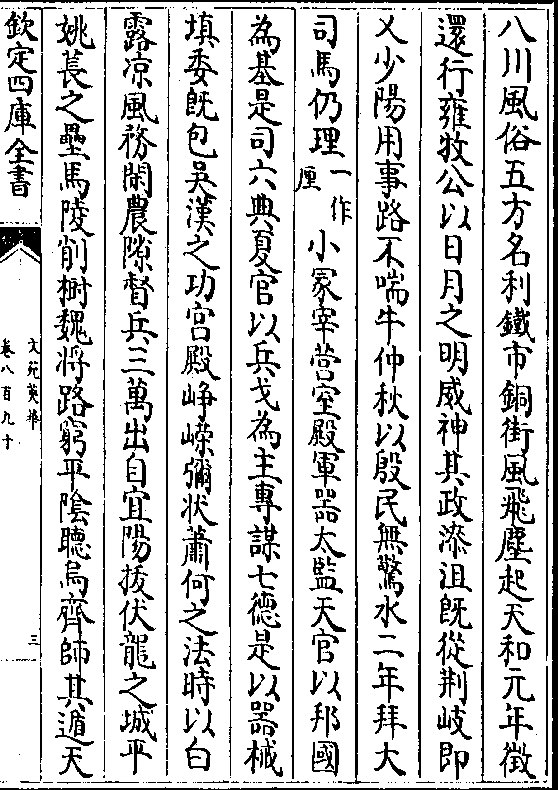 八川風俗五方名利鐵市銅街風飛塵起天和元年徵
還行雍牧公以日月之明威神其政漆沮既從荆岐即
乂少陽用事路不喘牛仲秋以殷民無驚水二年拜大
司馬仍理一作厘小冢宰營室殿軍器太監天官以邦國
為基是司六典夏官以兵戈為主專謀七德是以器械
填委既包吳漢之功宫殿崢嶸彌状蕭何之法時以白
露凉風務閑農隙督兵三萬出自宜陽拔伏龍之城平
姚萇之壘馬陵削樹魏将路窮平隂聴烏齊師其遁天
欽定四庫全書
文苑英華
卷八百九十
三